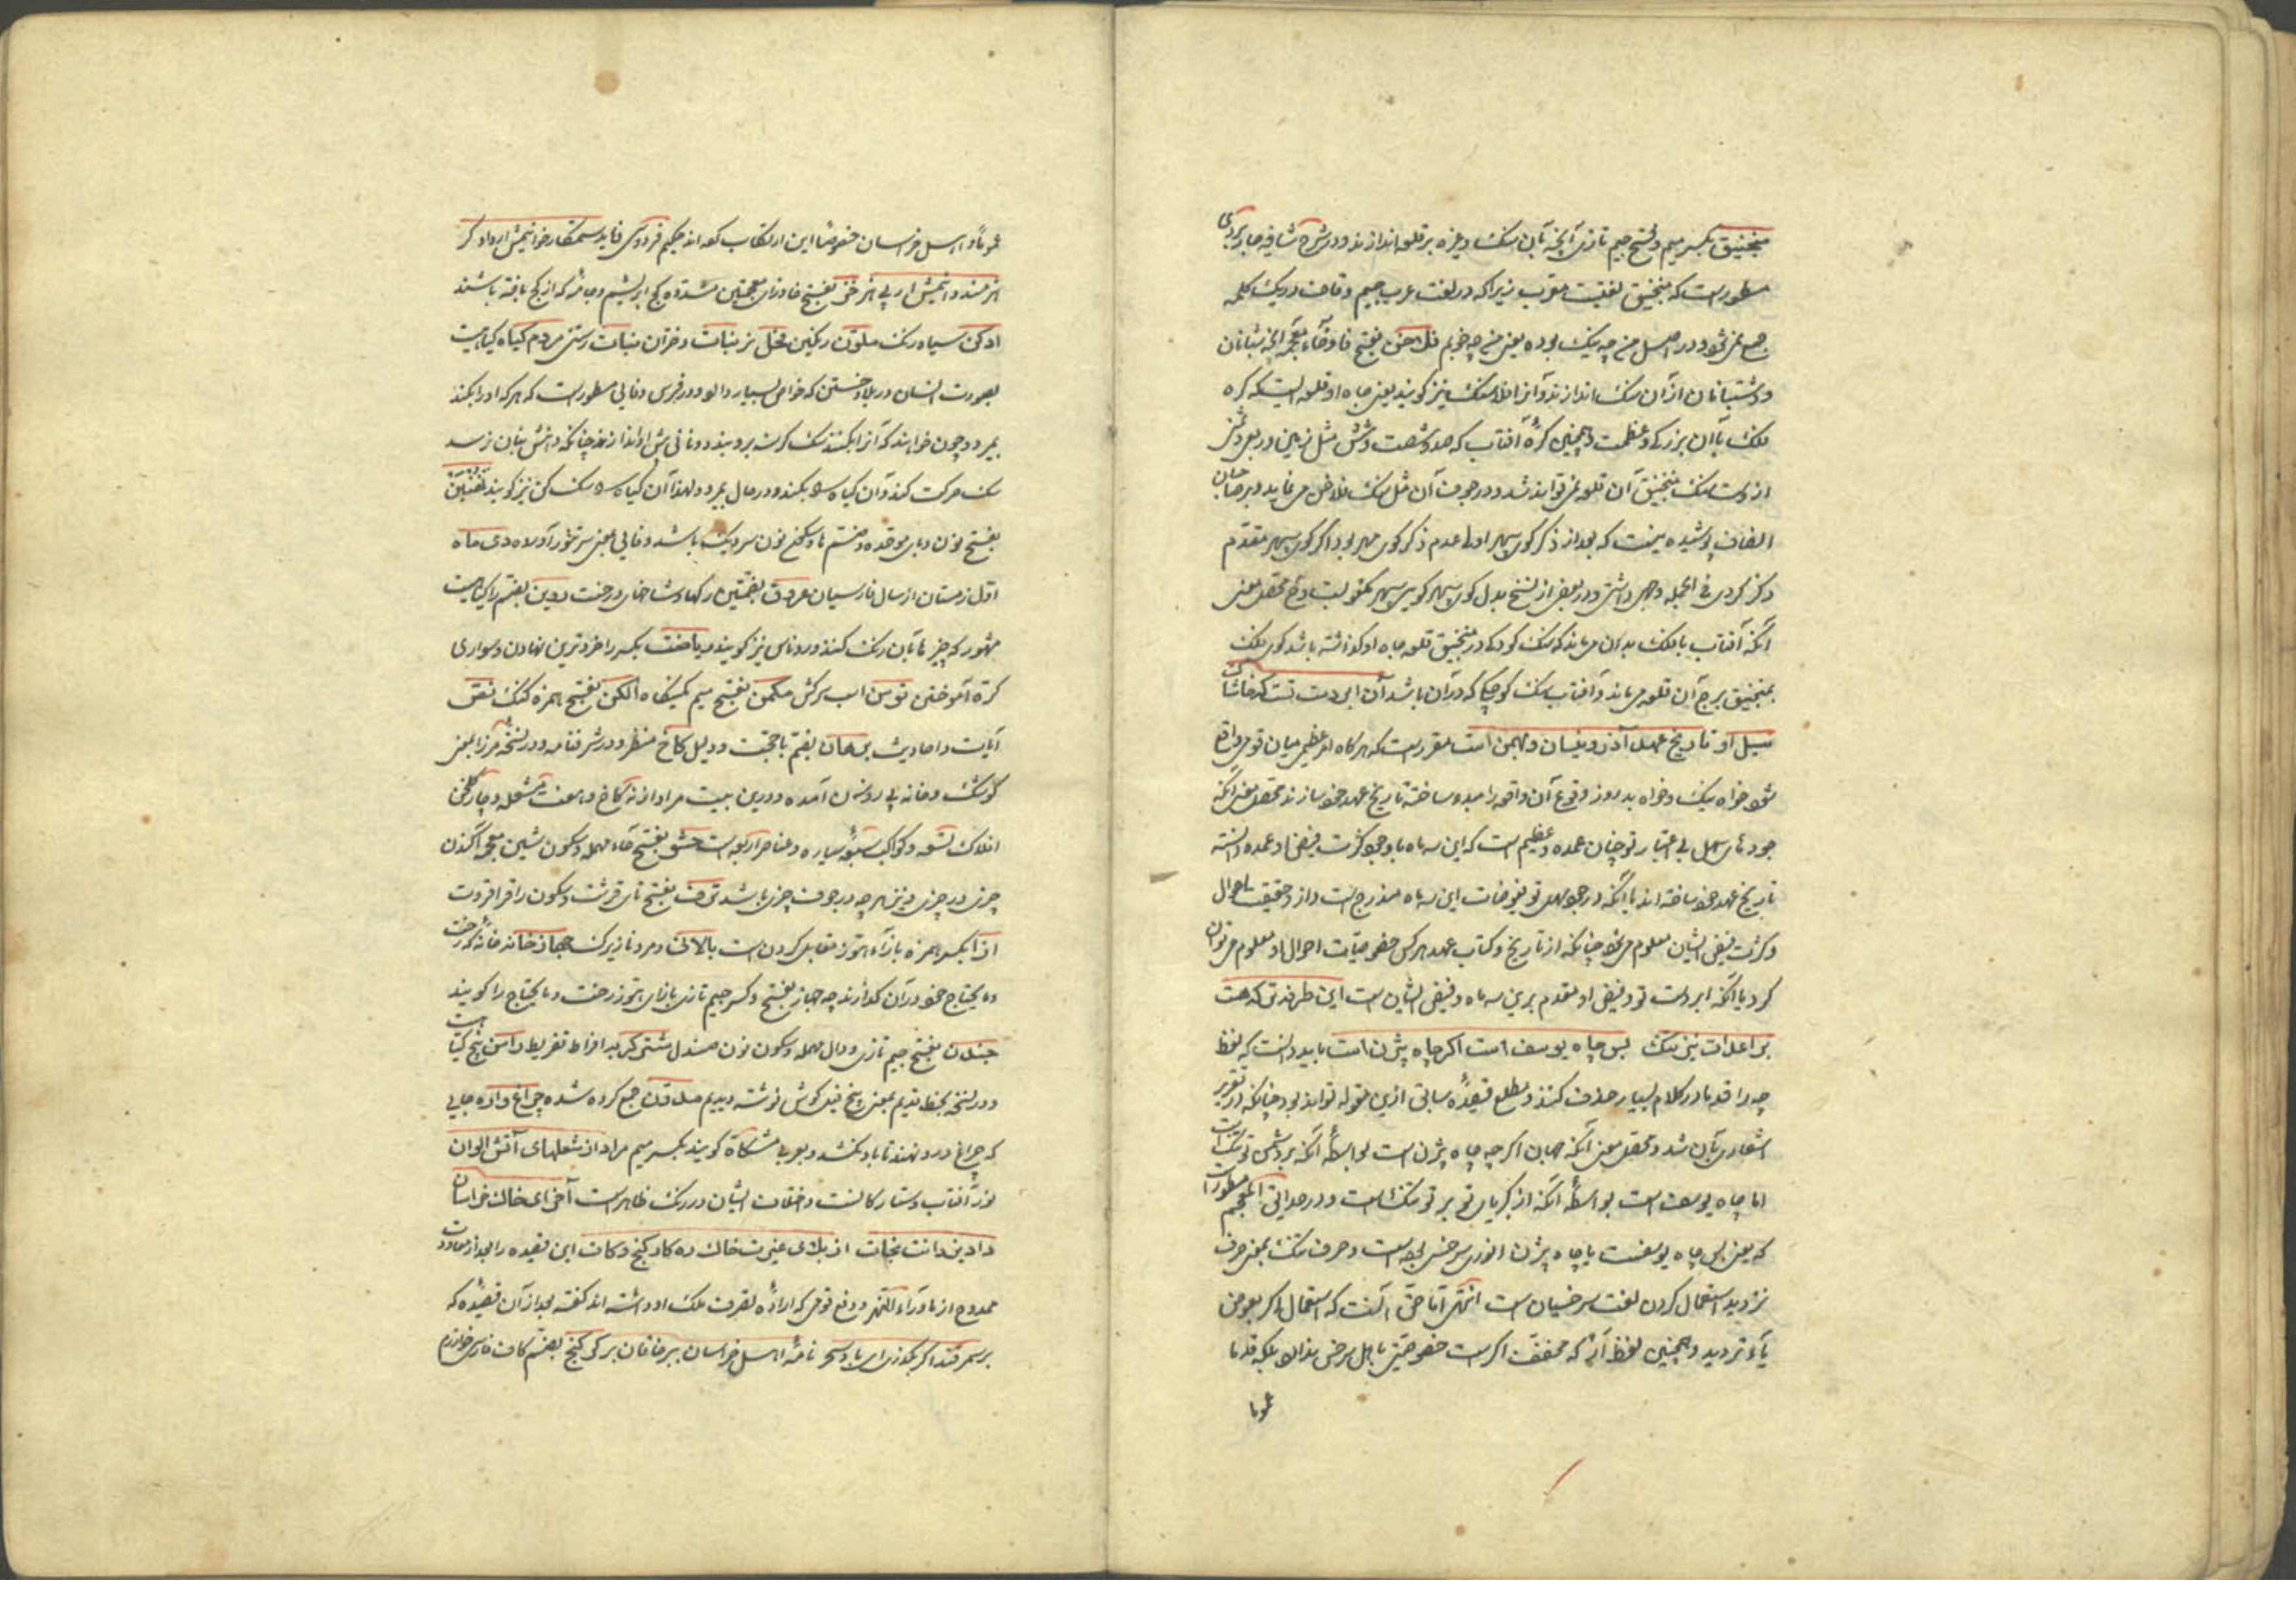 منجنیق بکسر میم و فتح جیم تازی آنچه بآن سنک و غیره بر قلعه اندازند و در شرح شافیه جاربردی
مسطورست که منجنیق لغتیست معرب زیرا که در لغت عرب جیم و قاف در یک کلمه
جمع نمی شود و در اصل من چه نیک بوده یعنی من چه خوبم فلاخن بفتح فا و خاء معجمه آنچه شبانان
و دشتبانان از آن سنک اندازند و آنرا فلاسنک نیز کویند یعنی جاه او قلعه ایست که کره
فلک با آن بزرکی و عظمت و همچنین کرهٔ آفتاب که صد و شصت و شش مثل زمین و ربعی و ثمن
از وست سنک منجنیق آن قلعه نمی تواند شد و در جوف آن مثل سنک فلاخن می نماید و بر صاحبان
انصاف پوشیده نیست که بعد از ذکر کوی سپهر اولی عدم ذکر کوی مهر بود اکر کوی سپهر مقدم
ذکر کردی فی الجمله وجهی داشتی و در بعضی از نسخ بدل کوی سپهر کوس سپهر مکتوبست و محصل معنی
آنکه آفتاب با فلک بدان می ماند که سنک کوچک در منجنیق قلعه جاه او کذاشته باشد کوی فلک
بمنجنیق برج آن قلعه می ماند و آفتاب سنک کوچکی که در آن باشد آن ابر دست تست که خاشاک
سیل او تاریخ عهد آذر و نیسان و بهمن است مقررست که هر کاه امر عظیمی میان قومی واقع
شود خواه نیک و خواه بد روز وقوع آن واقعه را مبدء ساخته تاریخ عهد خود سازند محصل معنی آنکه
جودهای سهل بی اعتبار تو چنان عمده و عظیم است که این سه ماه با وجود کثرت فیض او عمده دانسته
تاریخ عهد خود ساخته اند یا آنکه در جود سهل تو فیوضات این سه ماه مندرج است و از و حقیقت احوال
و کثرت فیض ایشان معلوم می شود چنانکه از تاریخ و کتاب عهد هر کس خصوصیات احوال او معلوم می توان
کرد یا آنکه ابر دست تو و فیض او مقدم برین سه ماه و فیض ایشان است این طرفه تر که هست
بر اعدات نیز تنک پس چاه یوسف است اکر چاه بیژن است باید دانست که لفظ
چه را قدما در کلام بسیار حذف کنند و مطلع قصیدهٔ سابق ازین مقوله تواند بود چنانکه در تقریر
اشعاری بآن شد و محصل معنی آنکه جهان اکر چه چاه بیژن است بواسطهٔ آنکه بر دشمن تو تنک است
اما چاه یوسف است بواسطهٔ آنکه از بکریان تو بر تو تنک است و در حدائق المعجم مسطورست
که یعنی پس چاه یوسفست یا چاه بیژن انوری سرخسی بوده است و حرف شک بمعنی حرف
تردید استعمال کردن لغت سرخسیان است انتهی اما حق آنست که استعمال اکر بعوض
یاء تردید و همچنین لفظ ار که مخفف اکر است خصوصیتی باهل سرخس ندارد بلکه قدما
عموما
عموماً و اهل خراسان خصوصاً این ارتکاب کرده اند حکیم فردوسی فرماید ستمکاره خوانیمش ار دادکر
هنرمند دانیمش ار بی هنر خز بفتح خا و زای معجمتین مشدده کج ابریشم و جامه که از کج بافته باشند
ادکن سیاه رنک ملون رنکین مخل بز بنات دختران نبات رستنی مردم کیاه کیاهیست
بصورت انسان در بلاد ختن که خواص بسیار دارد و در فرس وفایی مسطورست که هر که او را بکند
بمیرد و چون خواهند که آنرا بکنند سک کرسنه برو بندند و نانی پیش او اندازند چنانکه دهنش بنان نرسد
سک حرکت کند و آن کیاه را بکند و در حال بمیرد و لهذا آن کیاه را سک کن نیز کویند نهنبن
بفتح نون و بای موحده و ضم ها و سکون نون سر دیک باشد و فایی بمعنی سر تنور آورده دی ماه
اول زمستان از سال فارسیان عروق بضمتین رکها و شاخهای درخت روین بضم را کیاهیست
مشهور که چیزها بآن رنک کنند و روناس نیز کویند ریاضت بکسر را خرد ترین نهادن و سواری
کره آموختن توسن اسب سرکش مکمن بفتح میم کمینکاه الکن بفتح همزه کنک نص
آیات و احادیث برهان بضم با حجت و دلیل کاخ منظر و در شرفنامه و در نسخهٔ میرزا بمعنی
کوشک و خانه بی روزن آمده و درین بیت مراد از نه کاخ و هفت مشعله و چار کلخن
افلاک تسعه و کواکب سبعهٔ سیاره و عناصر اربعه است حشو بفتح حاء مهمله و سکون شین معجمه آکندن
چیزی در چیزی و نیز هر چه در جوف چیزی باشد ترف بفتح تای قرشت و سکون را قرا قروت
ازا بکسر همزه بازاء هوز مقابل کردن است بالای و مرد نازیرک جهاز خانه خانهٔ که رخت
و ما یحتاج خود در آن کذارند چه جهاز بفتح و کسر جیم تازی بازای هوز رخت و ما یحتاج را کویند
جندن بفتح جیم تازی و دال مهمله و سکون نون صندل مشتی کره افراط تفریط راسن بیخ کیاهیست
و در نسخه بخط قدیم بمعنی بیخ فیل کوش نوشته دیدیم مدون جمع کرده شده چراغ واره جایی
که چراغ در و نهند تا باد نکشد و بعربی مشکاة کویند بکسر میم مراد از شعلهای آتش الوان
نور آفتاب و ستارکانست و اختلاف ایشان در رنک ظاهرست آخر ای خاک خراسان
داد یزدانت نجات از بلای غیرت خاک ره کاد کنج و کات این قصیده را بعد از معاودت
ممدوح از ماوراء النهر و دفع قومی که ارادهٔ تصرف ملک او داشته اند کفته بعد از آن قصیده که
بر سمرقند اکر بکذری ای باد سحر نامهٔ اهل خراسان ببر خاقان بر کر کنج بضم کاف فارسی خوارزم